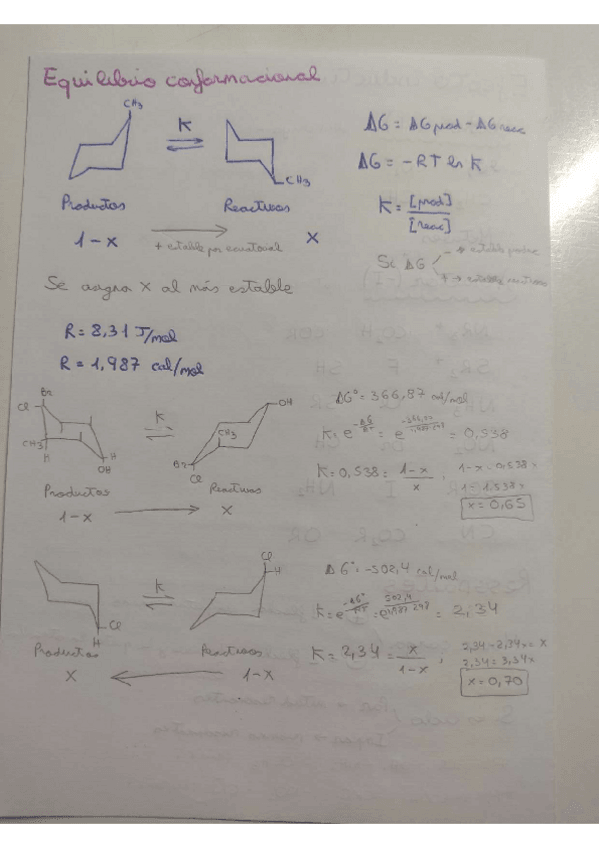 Equilibrio conformacional
CH3
K
CH3
Productos
Reactivos
1-x
+ estable por ecuatorial
x
ΔG = ΔG prod - ΔG reac
ΔG = -RT ln K
K = [prod] / [reac]
Si ΔG
- → estable productos
+ → estable reactivos
Se asigna x al más estable
R = 8,31 J/mol
R = 1,987 cal/mol
Br
Cl
CH3
H
H
OH
K
OH
CH3
Br
Cl
Productos
Reactivos
1-x
x
ΔG° = 366,87 cal/mol
= 0,538
K = 0,538 = 1-x / x ;
1-x = 0,538x
1 = 1,538x
x = 0,65
Cl
H
K
Cl
H
Productos
Reactivos
x
1-x
ΔG° = -502,4 cal/mol
= 2,34
K = 2,34 = x / 1-x ;
2,34 - 2,34x = x
2,34 = 3,34x
x = 0,70